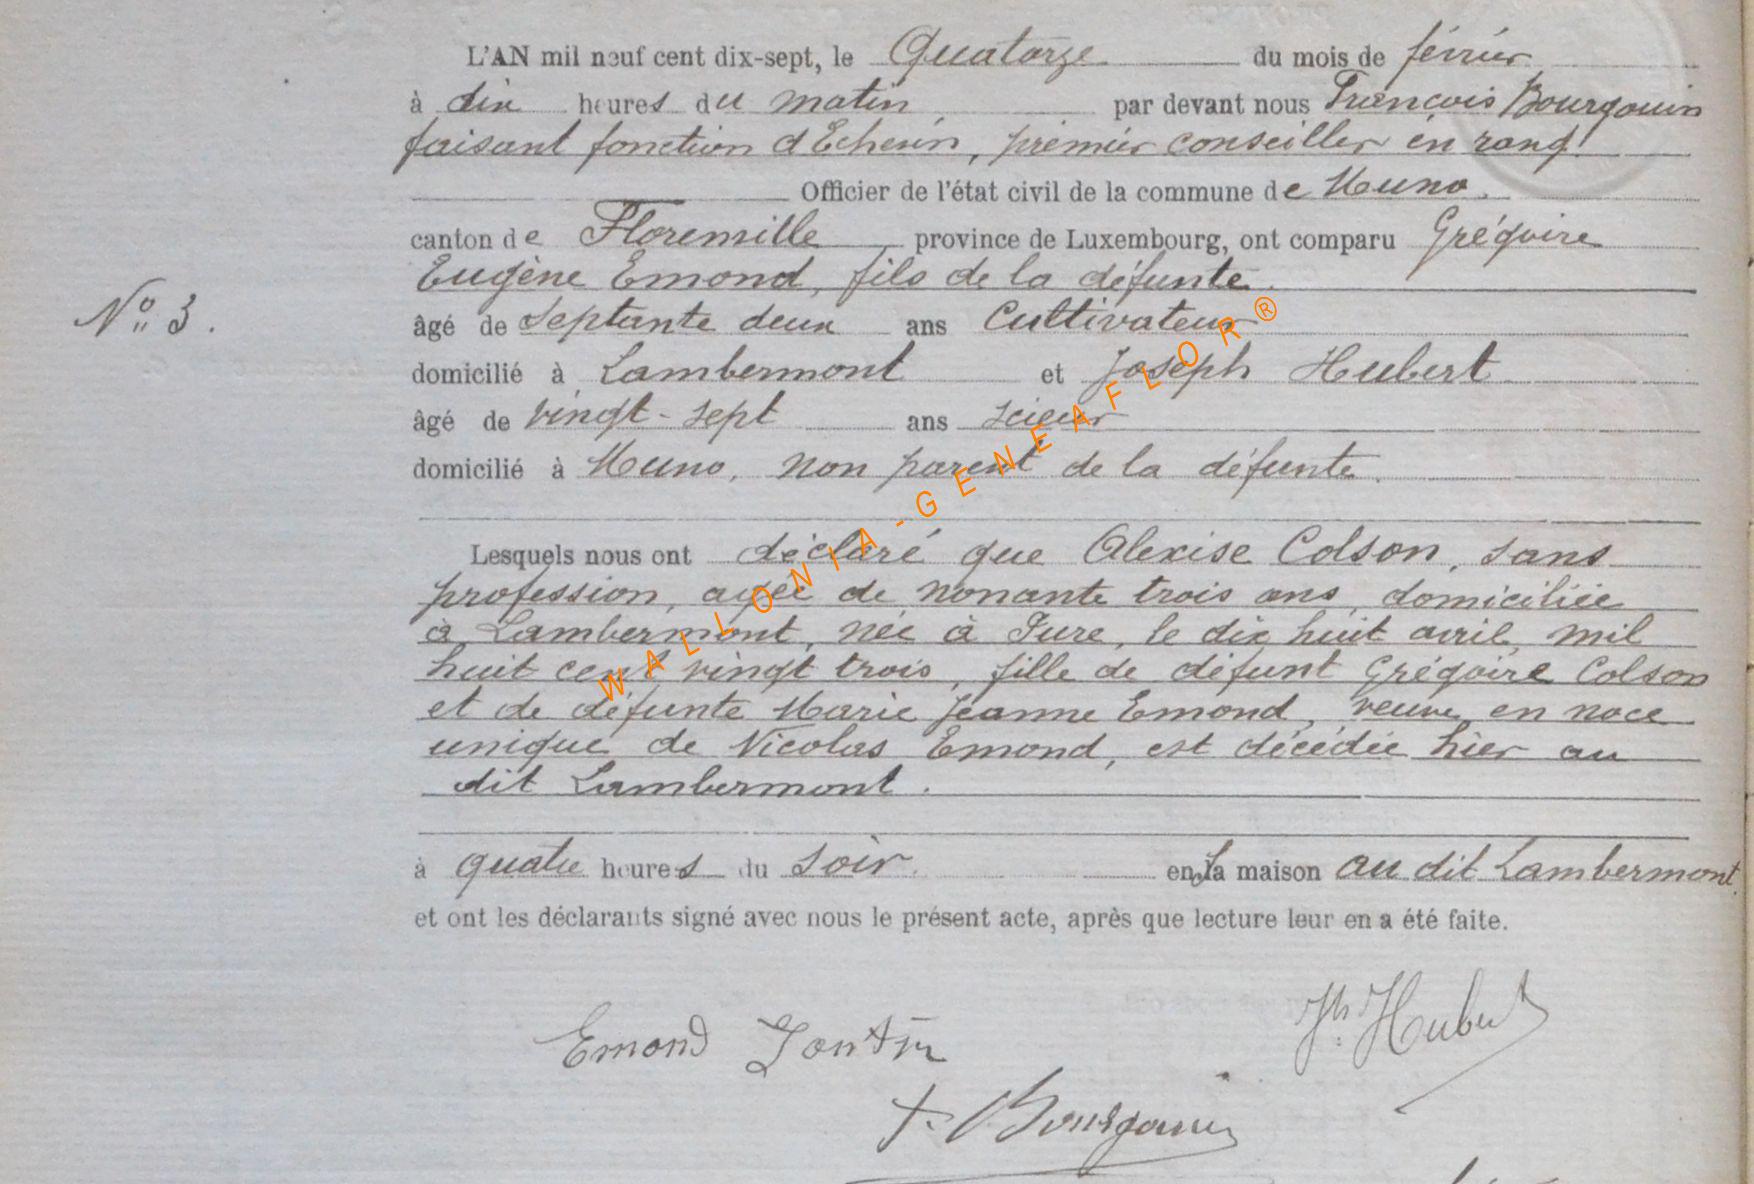 L'AN mil neuf cent dix-sept, le Quatorze du mois de février
à dix heures du matin, par devant nous François Bourgouin
faisant fonction d'Echevin, premier conseiller en rang
Officier de l'état civil de la commune de Muno.
canton de Florenville province de Luxembourg, ont comparu Grégoire
Eugène Emond, fils de la défunte.
N° 3.
âgé de septante deux ans Cultivateur
domicilié à Lambermont et Joseph Hubert
âgé de vingt-sept ans scieur
domicilié à Muno, non parent de la défunte.
Lesquels nous ont déclaré que Alexise Colson, sans
profession, agée de nonante trois ans, domiciliée
à Lambermont, née à Fure, le dix huit avril mil
huit cent vingt trois, fille de défunt Grégoire Colson
et de défunte Marie Jeanne Emond, veuve en noce
unique de Nicolas Emond, est décédée hier au
dit Lambermont.
à quatre heures du soir. en sa maison au dit Lambermont.
et ont les déclarants signé avec nous le présent acte, après que lecture leur en a été faite.
Jh Hubert
Emond
F. Bourgouin
WALLONIA-GENEAFLOR®